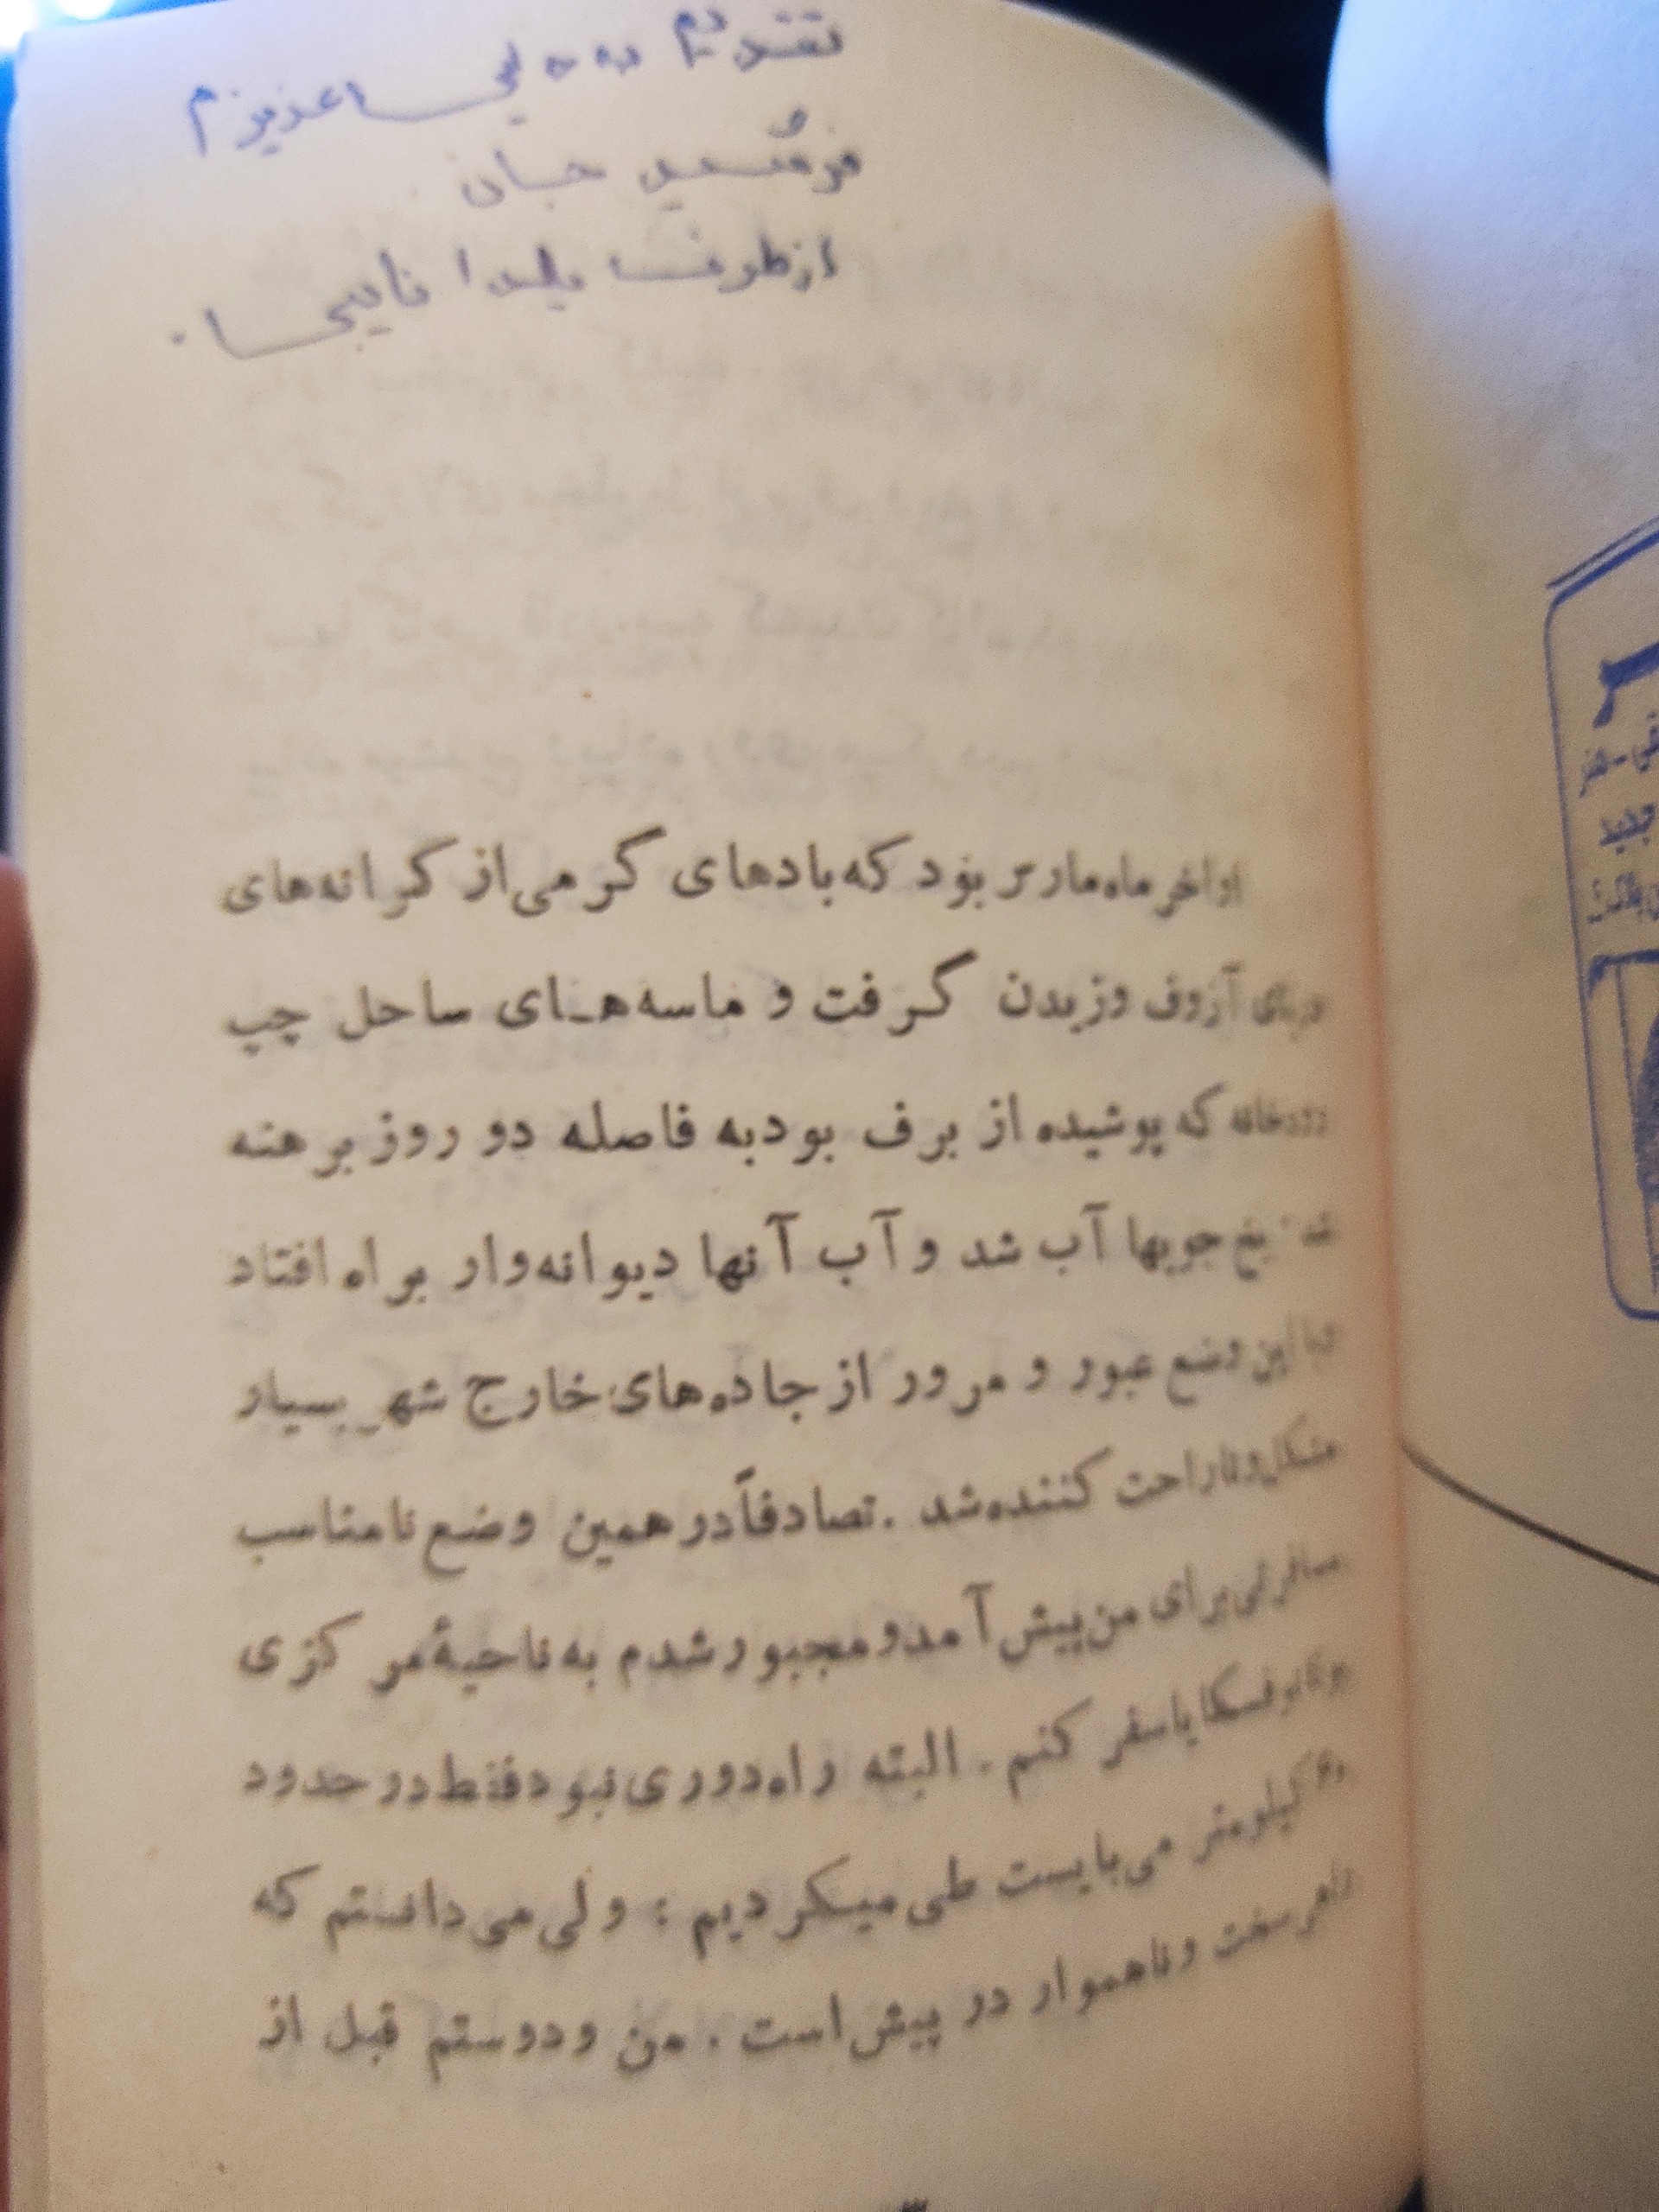 تقدیم به
عزیزم
جان
از طرف یلدا
اواخر ماه مارس بود که بادهای گرمی از کرانه‌های
دریای آزوف وزیدن گرفت و ماسه‌هـای ساحل چپ
رودخانه که پوشیده از برف بود به فاصله دو روز برهنه
شد. یخ جویها آب شد و آب آنها دیوانه‌وار براه افتاد
و با این وضع عبور و مرور از جاده‌های خارج شهر بسیار
مشکل و ناراحت کننده شد . تصادفاً در همین وضع نامناسب
مسافرتی برای من پیش آمد و مجبور شدم به ناحیهٔ مرکزی
سفر کنم . البته راه دوری نبود فقط در حدود
کیلومتر می‌بایست طی میکردیم ؛ ولی می‌دانستم که
سخت و ناهموار در پیش است . من و دوستم قبل از
۳
جدید